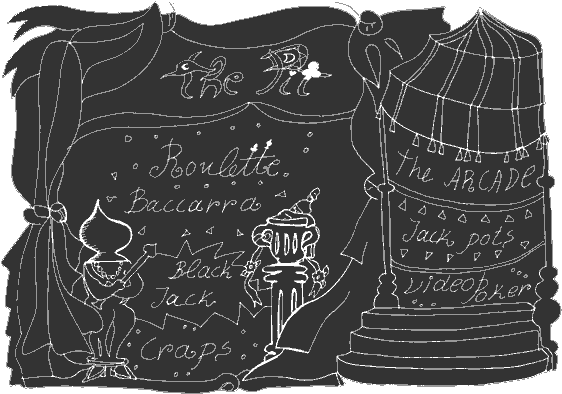 the
Roulette
Baccarra
Black
Jack
Craps
the ARCADE
Jack pots
video Poker